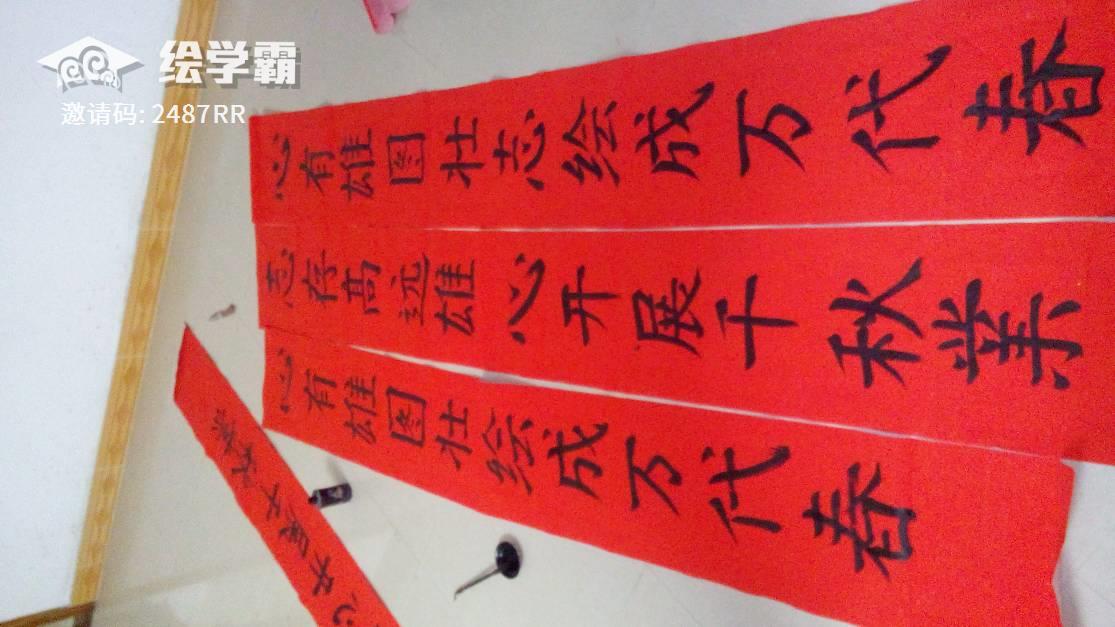 绘学霸
邀请码: 2487RR
心有雄图壮志绘成万代春
志存高远雄心开展千秋业
心有雄图壮绘成万代春
心开展千秋